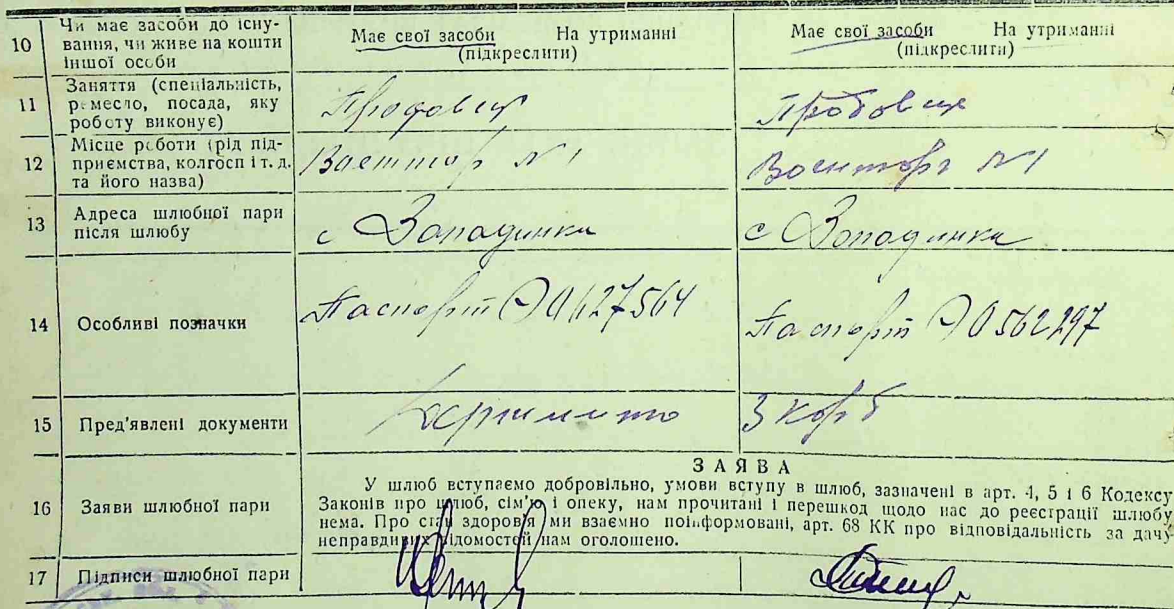 10 Чи має засоби до існу-
вання, чи живе на кошти
іншої особи
Має свої засоби На утриманні
(підкреслити)
Має свої засоби На утриманні
(підкреслити)
11 Заняття (спеціальність,
ремесло, посада, яку
роботу виконує)
Продовец
Продовец
12 Місце роботи (рід під-
приємства, колгосп і т. д.
та його назва)
Военторг №1
Военторг №1
13 Адреса шлюбної пари
після шлюбу
с Западинка
с Западинка
14 Особливі позначки
Паспорт
Паспорт 0562297
15 Пред'явлені документи
16 Заяви шлюбної пари
ЗАЯВА
У шлюб вступаємо добровільно, умови вступу в шлюб, зазначені в арт. 4, 5 і 6 Кодексу
Законів про шлюб, сім'ю і опеку, нам прочитані і перешкод щодо нас до реєстрації шлюбу
нема. Про стан здоров'я ми взаємно поінформовані, арт. 68 КК про відповідальність за дачу
неправдивих відомостей нам оголошено.
17 Підписи шлюбної пари